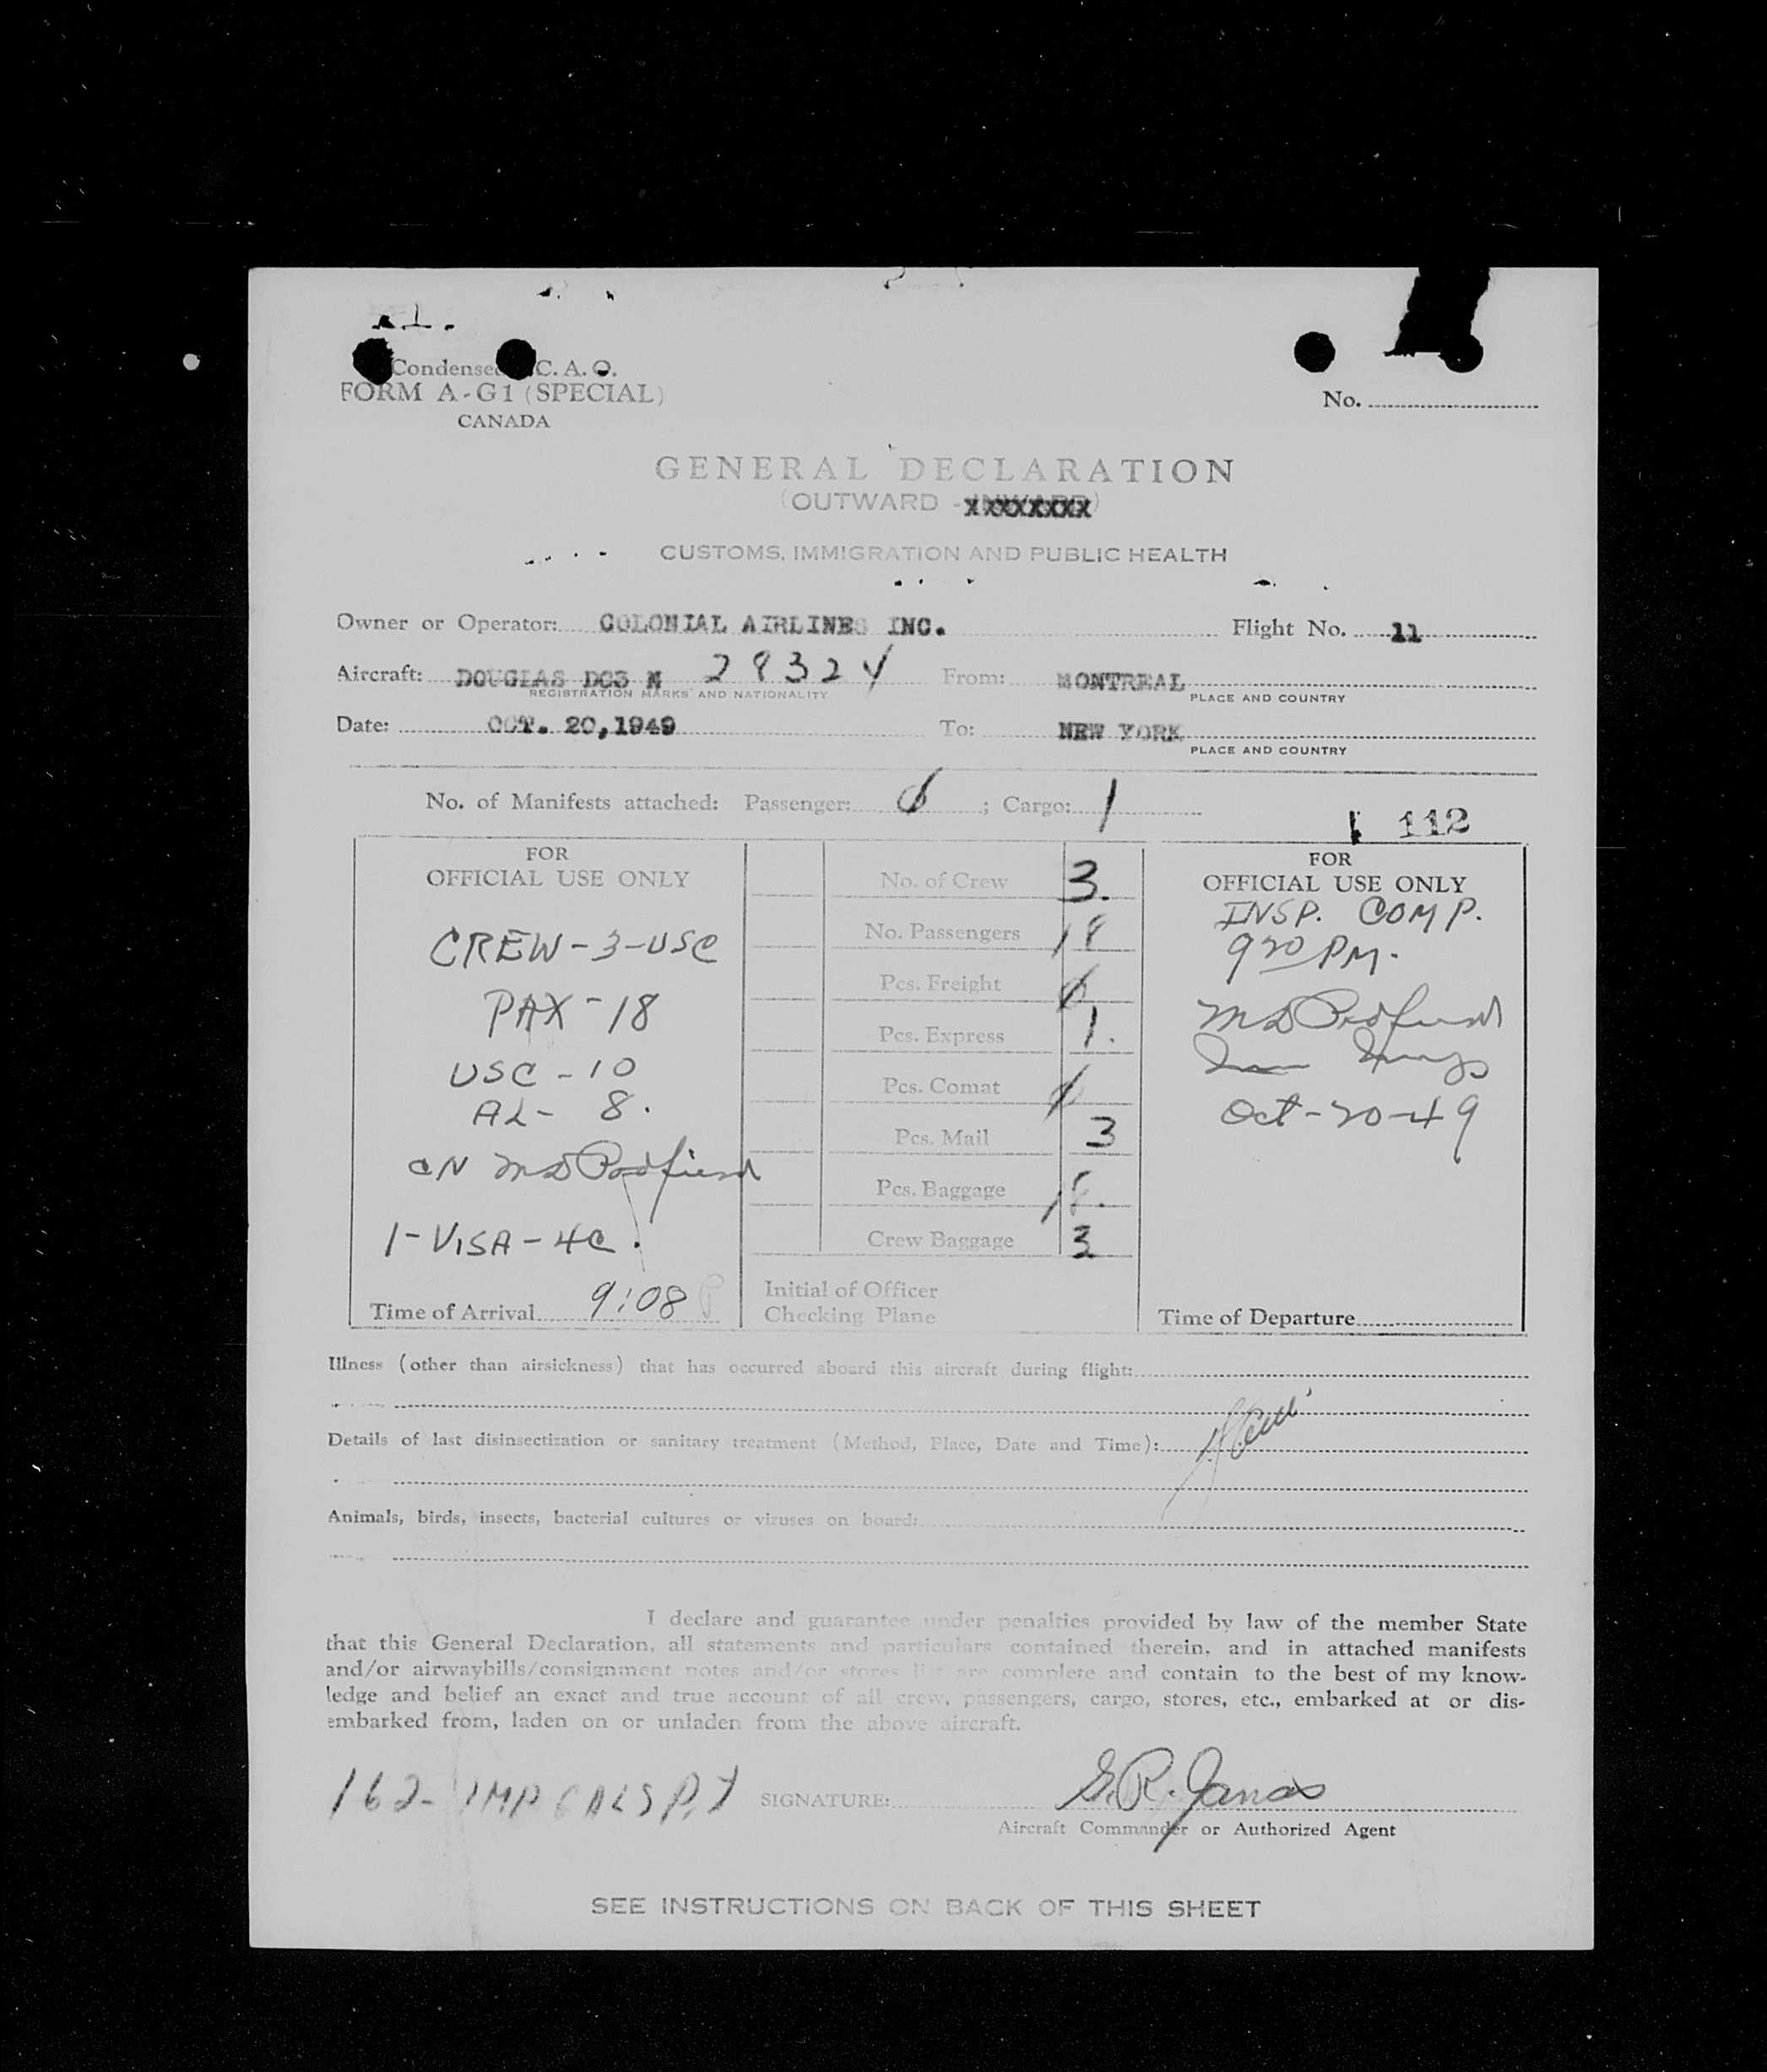 Condensed C. A. O.
FORM A-G1 (SPECIAL)
CANADA
No.
GENERAL DECLARATION
(OUTWARD - XXXXXXXX)
CUSTOMS, IMMIGRATION AND PUBLIC HEALTH
Owner or Operator: COLONIAL AIRLINES INC. Flight No. 11
Aircraft: DOUGLAS DC3 N 28324 From: MONTREAL
REGISTRATION MARKS AND NATIONALITY PLACE AND COUNTRY
Date: OCT. 20,1949 To: NEW YORK
PLACE AND COUNTRY
No. of Manifests attached: Passenger: ; Cargo: 1
112
FOR
OFFICIAL USE ONLY
CREW-3-USC
PAX-18
USC-10
AL- 8.
1-VISA-4C.
Time of Arrival 9:08 P
No. of Crew 3.
No. Passengers 18
Pcs. Freight
Pcs. Express 1.
Pcs. Comat
Pcs. Mail 3
Pcs. Baggage 18.
Crew Baggage 3
Initial of Officer
Checking Plane
FOR
OFFICIAL USE ONLY
INSP. COMP.
920 PM.
Oct-20-49
Time of Departure
Illness (other than airsickness) that has occurred aboard this aircraft during flight:
Details of last disinsectization or sanitary treatment (Method, Place, Date and Time):
Animals, birds, insects, bacterial cultures or viruses on board:
I declare and guarantee under penalties provided by law of the member State
that this General Declaration, all statements and particulars contained therein, and in attached manifests
and/or airwaybills/consignment notes and/or stores list are complete and contain to the best of my know-
ledge and belief an exact and true account of all crew, passengers, cargo, stores, etc., embarked at or dis-
embarked from, laden on or unladen from the above aircraft.
162- IMP GALS
SIGNATURE: G.R. Janas
Aircraft Commander or Authorized Agent
SEE INSTRUCTIONS ON BACK OF THIS SHEET